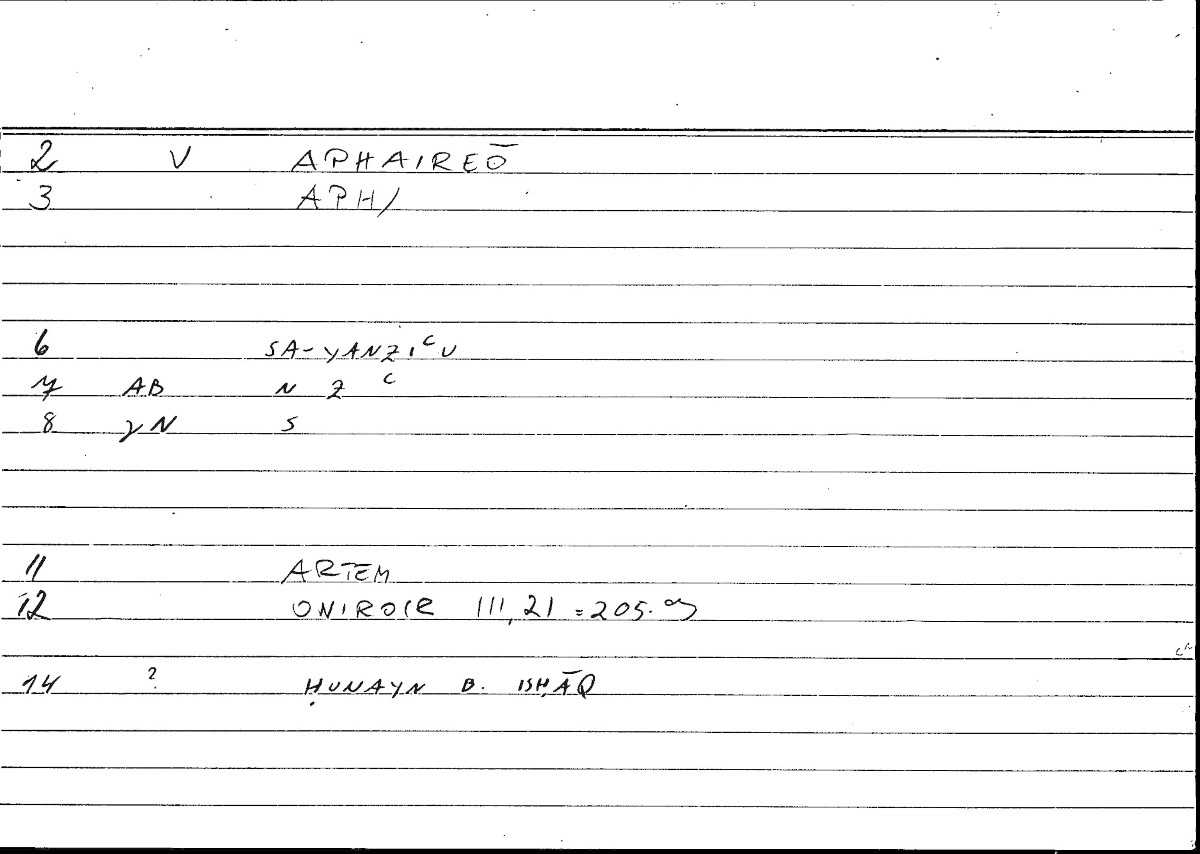 2 V APHAIREŌ
3 APH/
6 SA-YANZIᶜU
7 AB N Z ᶜ
8 γN S
11 ARTEM
12 ONIROCR III,21 = 205.
14 ? ḤUNAYN B. ISḤĀQ